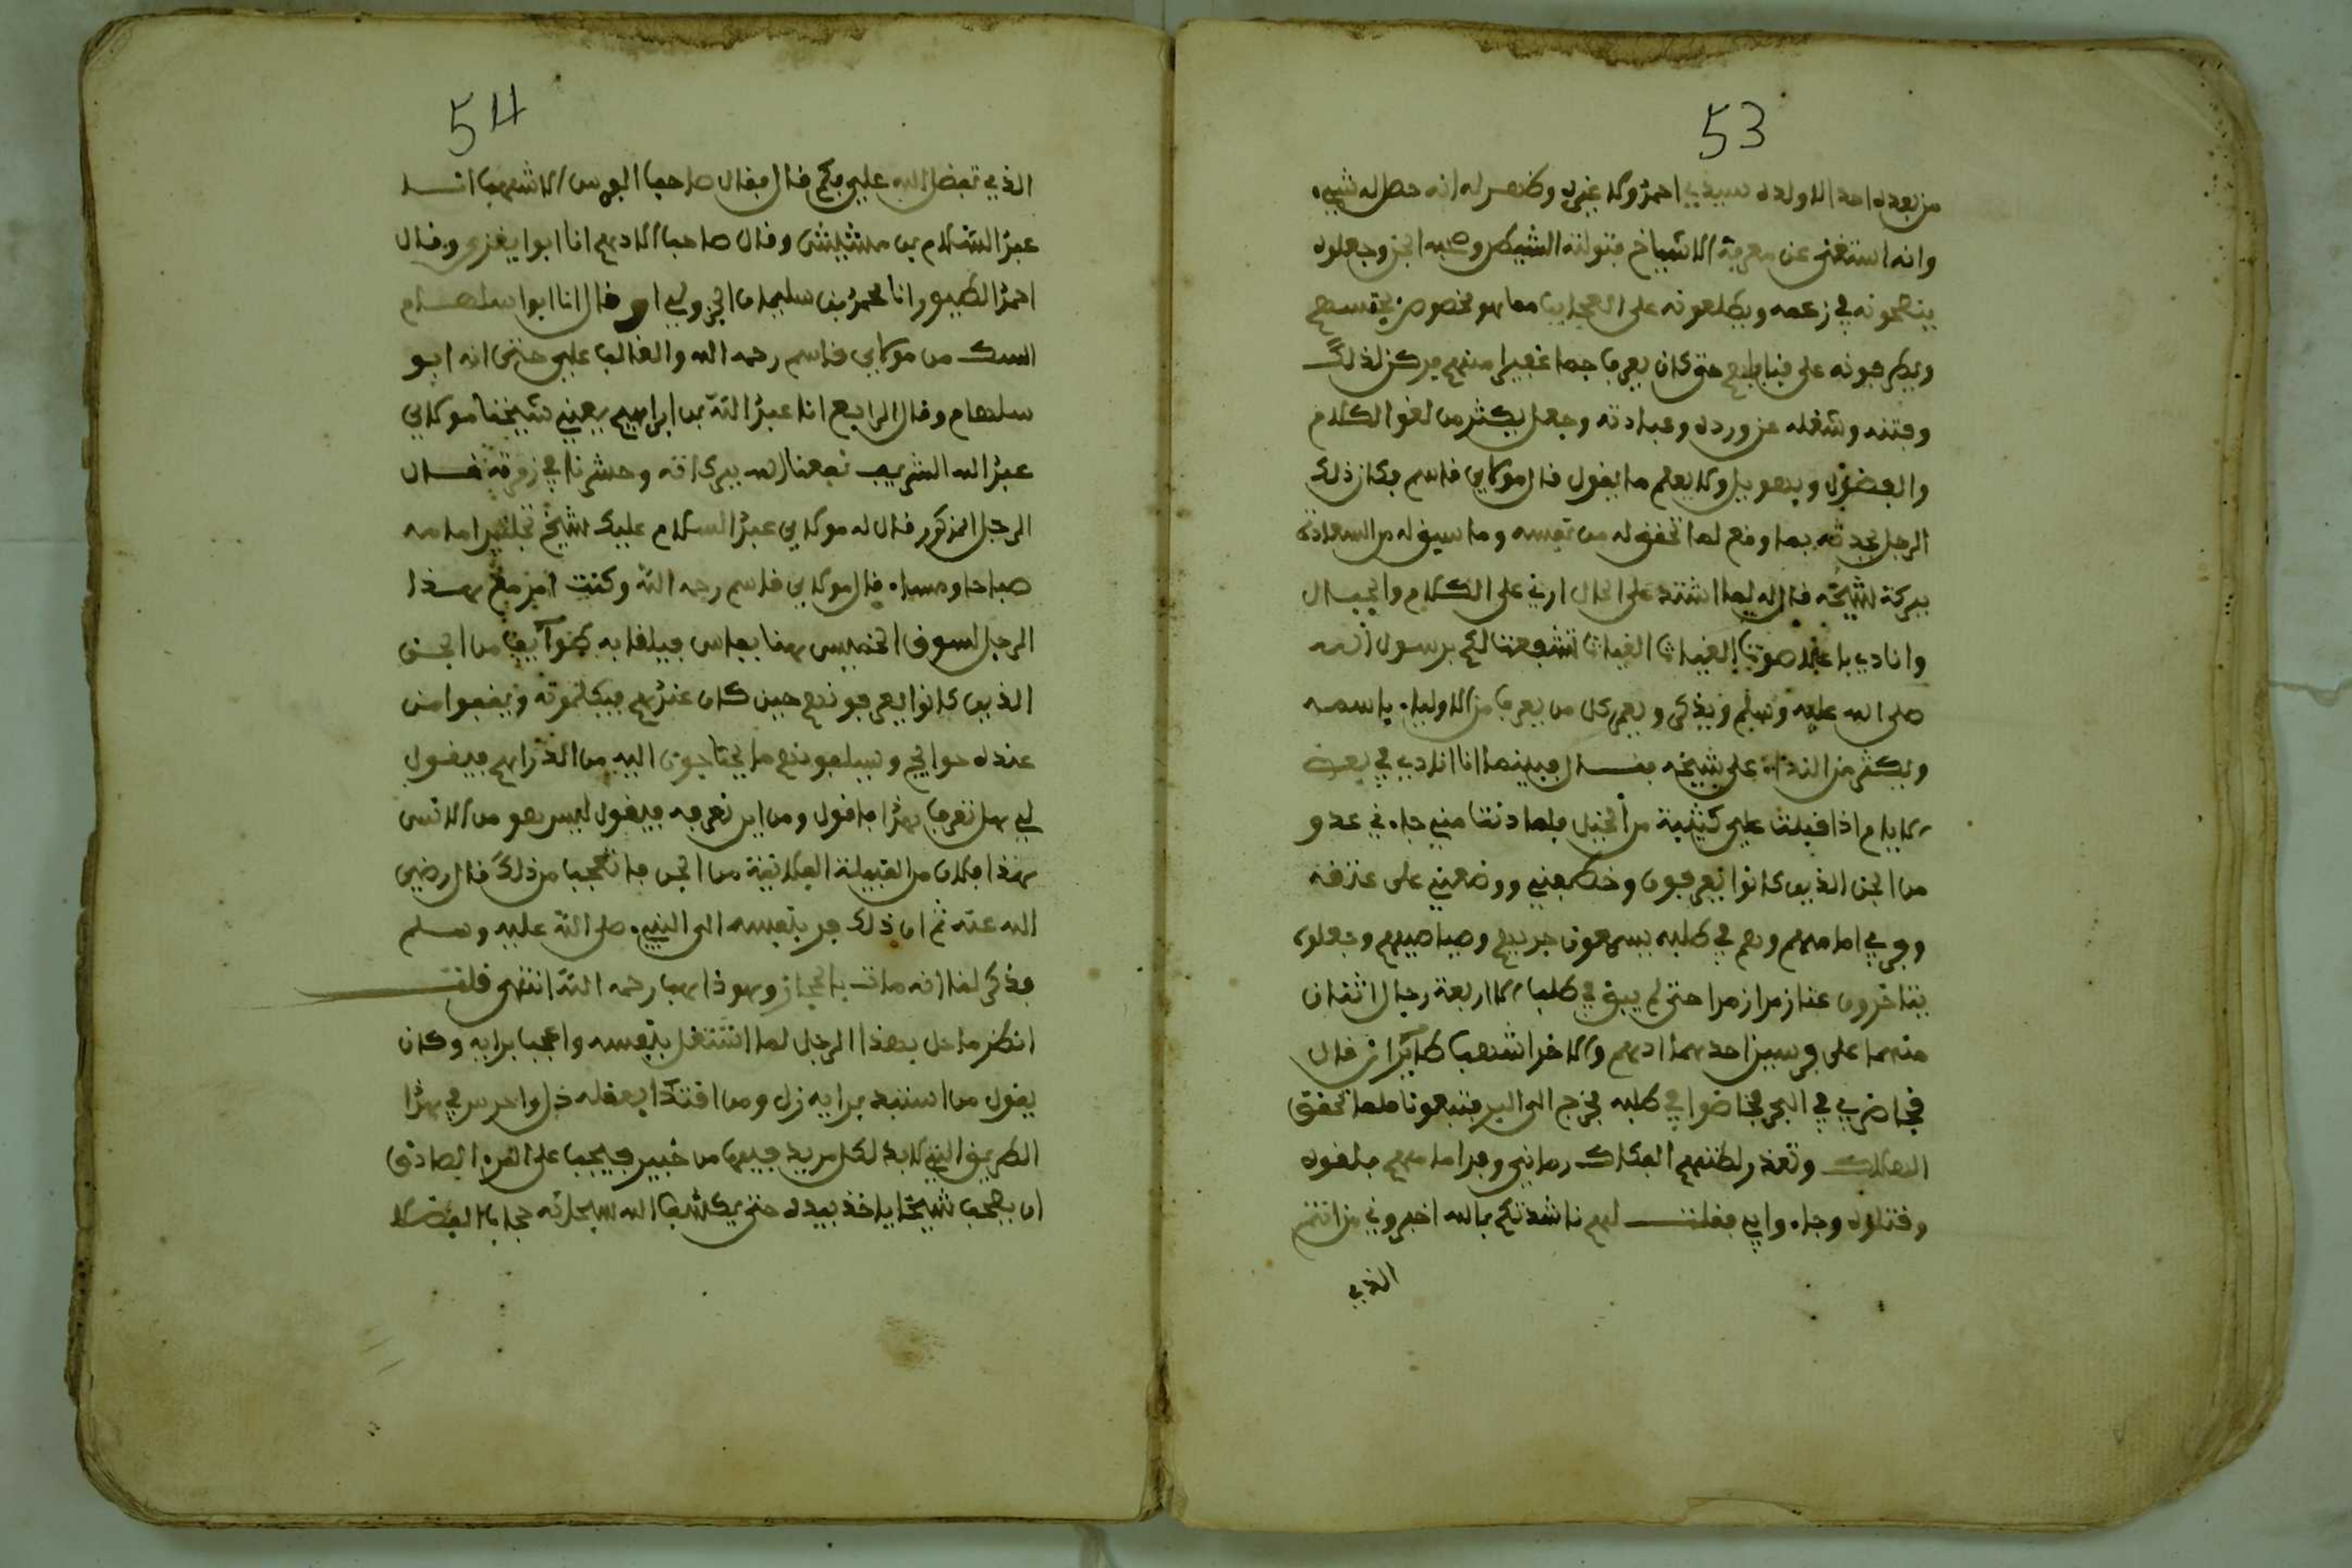 53
من بعده احدا لا ولده سيدي احمد ولا غيره وظهر له انه حصل له شيء
وانه استغنى عن معرفة الاشياخ فتولته الشيطن وصبه الجن وجعلوه
ينصحونه في زعمه ويطلعونه على العجايب مما هو مخصوص بجنسهم
ويطوفونه على قبايلهم حتى كان يعرف جما غفيرا منهم فركن لذلك
وفتنه وشغله عن ورده وعبادته وجعل يكثر من لغو الكلام
والفضول ويهويل ولا يعلم ما يقول قال مولاي قاسم فكان ذلك
الرجل يحدثه بما وقع لما تحقق له من نفسه وما سبق له من السعادة
ببركة شيخه قال له لما اشتد على الحال ارني على الكلام والجبال
وانادي باعلا صوتي الغياث الغياث تشفعنا لكم برسول الله
صلى الله عليه وسلم ونذكر ويعم كل من يعرف من الاولياء باسمه
ويكثر من النداء على شيخه فقال فبينما انا انادي في بعض
الايام اذا اقبلت علي كتيبة من الخيل فلما دنت مني جاءني عدو
من الجن الذين كانوا يعرفون وخطفني ووضعني على عنقه
وفر بي امامهم وهم في طلبه يسمعون جريهم وصياصيهم وجعلوا
يتاخرون عنا زمرا زمرا حتى لم يبق في طلبنا الا اربعة رجال اثنان
منهما على فرسين احدهما ادهم والاخر اشهب طايران قال
فخاض بي في البحر فخاضوا في طلبه فخرج الى البر فتبعونا فلما تحقق
الهلاك وتعذر لظنهم الفكاك رماني وفر امامهم فلقوه
وقتلوه وجاءوا لي فقلت لهم ناشدتكم بالله اخبروني من انتم
الذي
54
الذي تفضل الله علي بكم قال فقال صاحب الفرس الاشهب انا
عبد السلام بن مشيش وقال صاحب الادهم انا ابوا يعزى وقال
احمد الطيور انا محمد بن سليمان الجزولي او قال انا ابوا سلهام
الشك من مولاي قاسم رحمه الله والغالب على ظني انه ابو
سلهام وقال الرابع انا عبد الله بن ابراهيم يعني شيخنا مولاي
عبد الله الشريف نفعنا الله ببركاته وحشرنا في زمرته قال
الرجل المذكور قال له مولاي عبد السلام عليك بشيخ تجلس امامه
صباحا ومساء قال مولاي قاسم رحمه الله وكنت امر مع هذا
الرجل لسوق الخميس هنا بفاس فيلقا به طوايف من الجن
الذين كانوا يعرفونه حين كان عندهم فيكلمونه ويقفوا من
عنده حوايج ويسلفونه ما يحتاجون اليه من الدراهم فيقول
لي هل تعرف هذا فاقول ومن اين نعرفه فيقول ليس هو من الانس
هذا فلان من القبيلة الفلانية من الجن فانعجب من ذلك قال رضي
الله عنه ثم ان ذلك فر بنفسه الى النبي صلى الله عليه وسلم
فذكر لنا انه مات بالحجاز وهو ذاهب رحمه الله انتهى قلت
انظر ما حل بهذا الرجل لما اشتغل بنفسه واعجب برايه وكان
يقول من استبد برايه زل ومن اقتدا بعقله ضل واحرس في هذا
الطريق التي لابد لكل مريد فيها من خبير فيجب على المرء الصادق
ان يصحب شيخا ياخذ بيده حتى يكشف الله سبحانه حجابا الفضلا